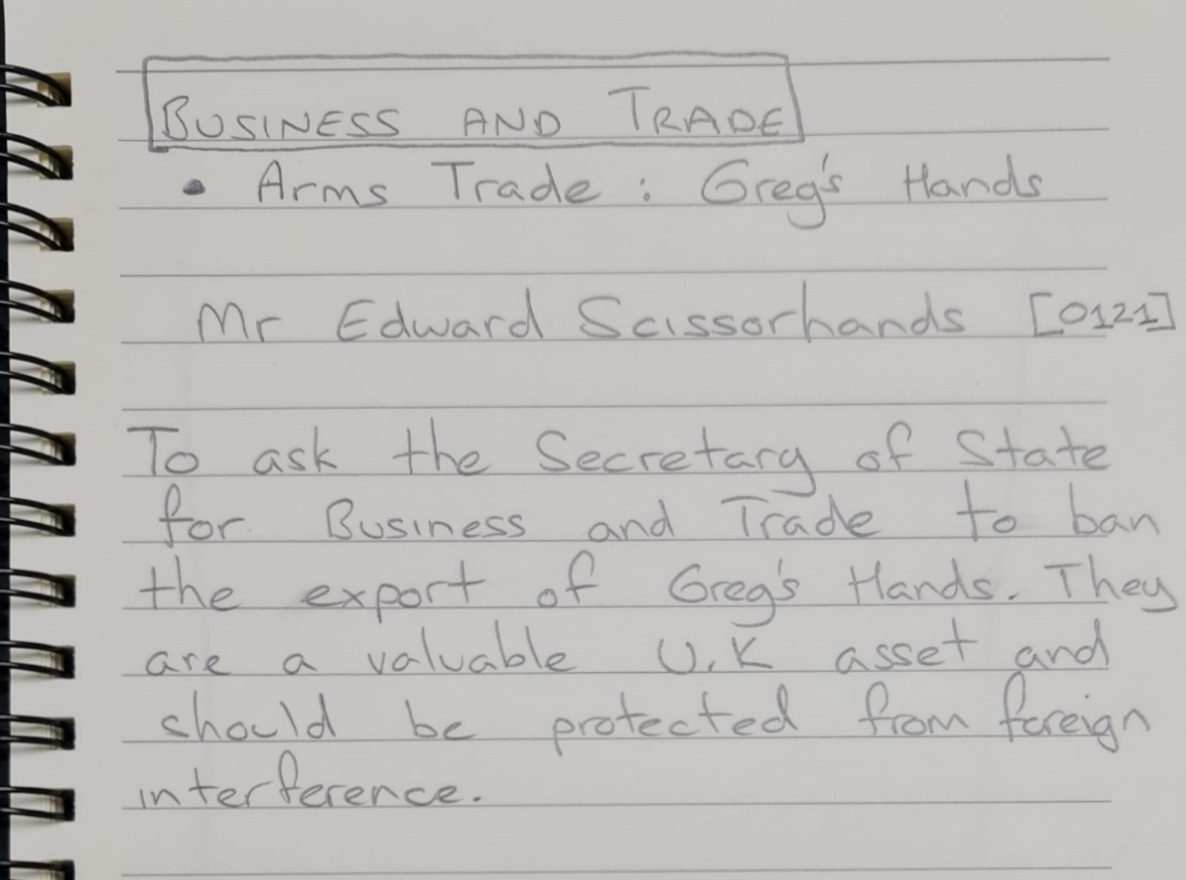 BUSINESS AND TRADE
• Arms Trade : Greg's Hands
Mr Edward Scissorhands [0121]
To ask the Secretary of State
for Business and Trade to ban
the export of Greg's Hands. They
are a valuable U.K asset and
should be protected from foreign
interference.